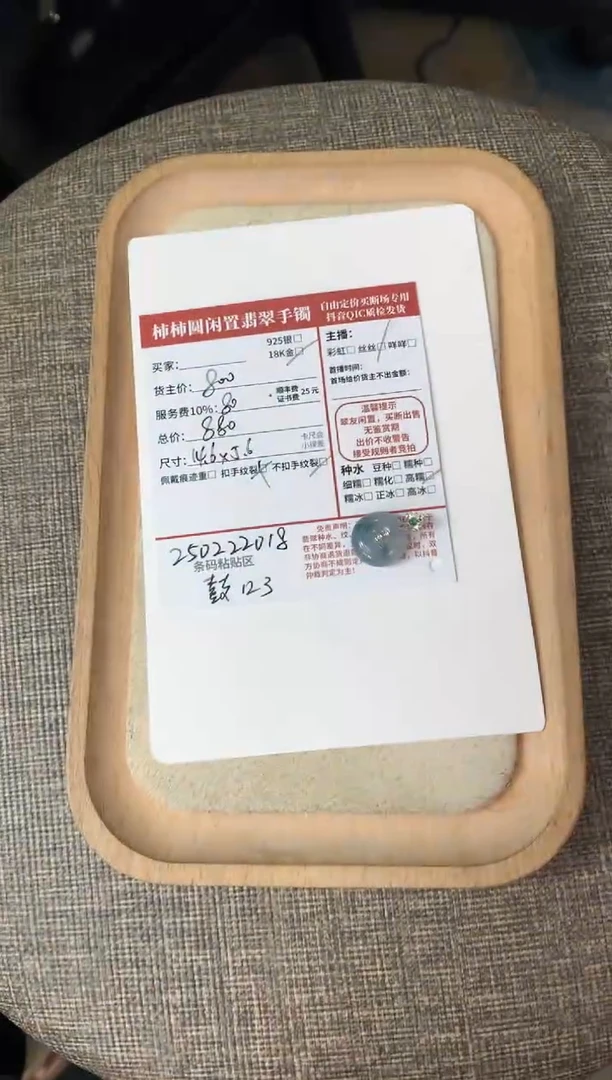 柿柿圆闲置翡翠手镯
自由定价买断场专用
抖音QIC质检发货
925银□
18K金□
买家：
货主价：800
服务费10%：80
顺丰费
证书费 25元
总价：880
尺寸：14.6×5.6
卡尺会
小误差
佩戴痕迹重□ 扣手纹裂□ 不扣手纹裂□
主播：
彩虹□ 丝丝□ 咩咩□
首播时间：
首场给价货主不出金额：
温馨提示
翠友闲置，买断出售
无鉴赏期
出价不收警告
接受规则者竞拍
种水 豆种□ 糯种□
细糯□ 糯化□ 高糯□
糯冰□ 正冰□ 高冰□
250222018
条码粘贴区
鼓123
免责声明：